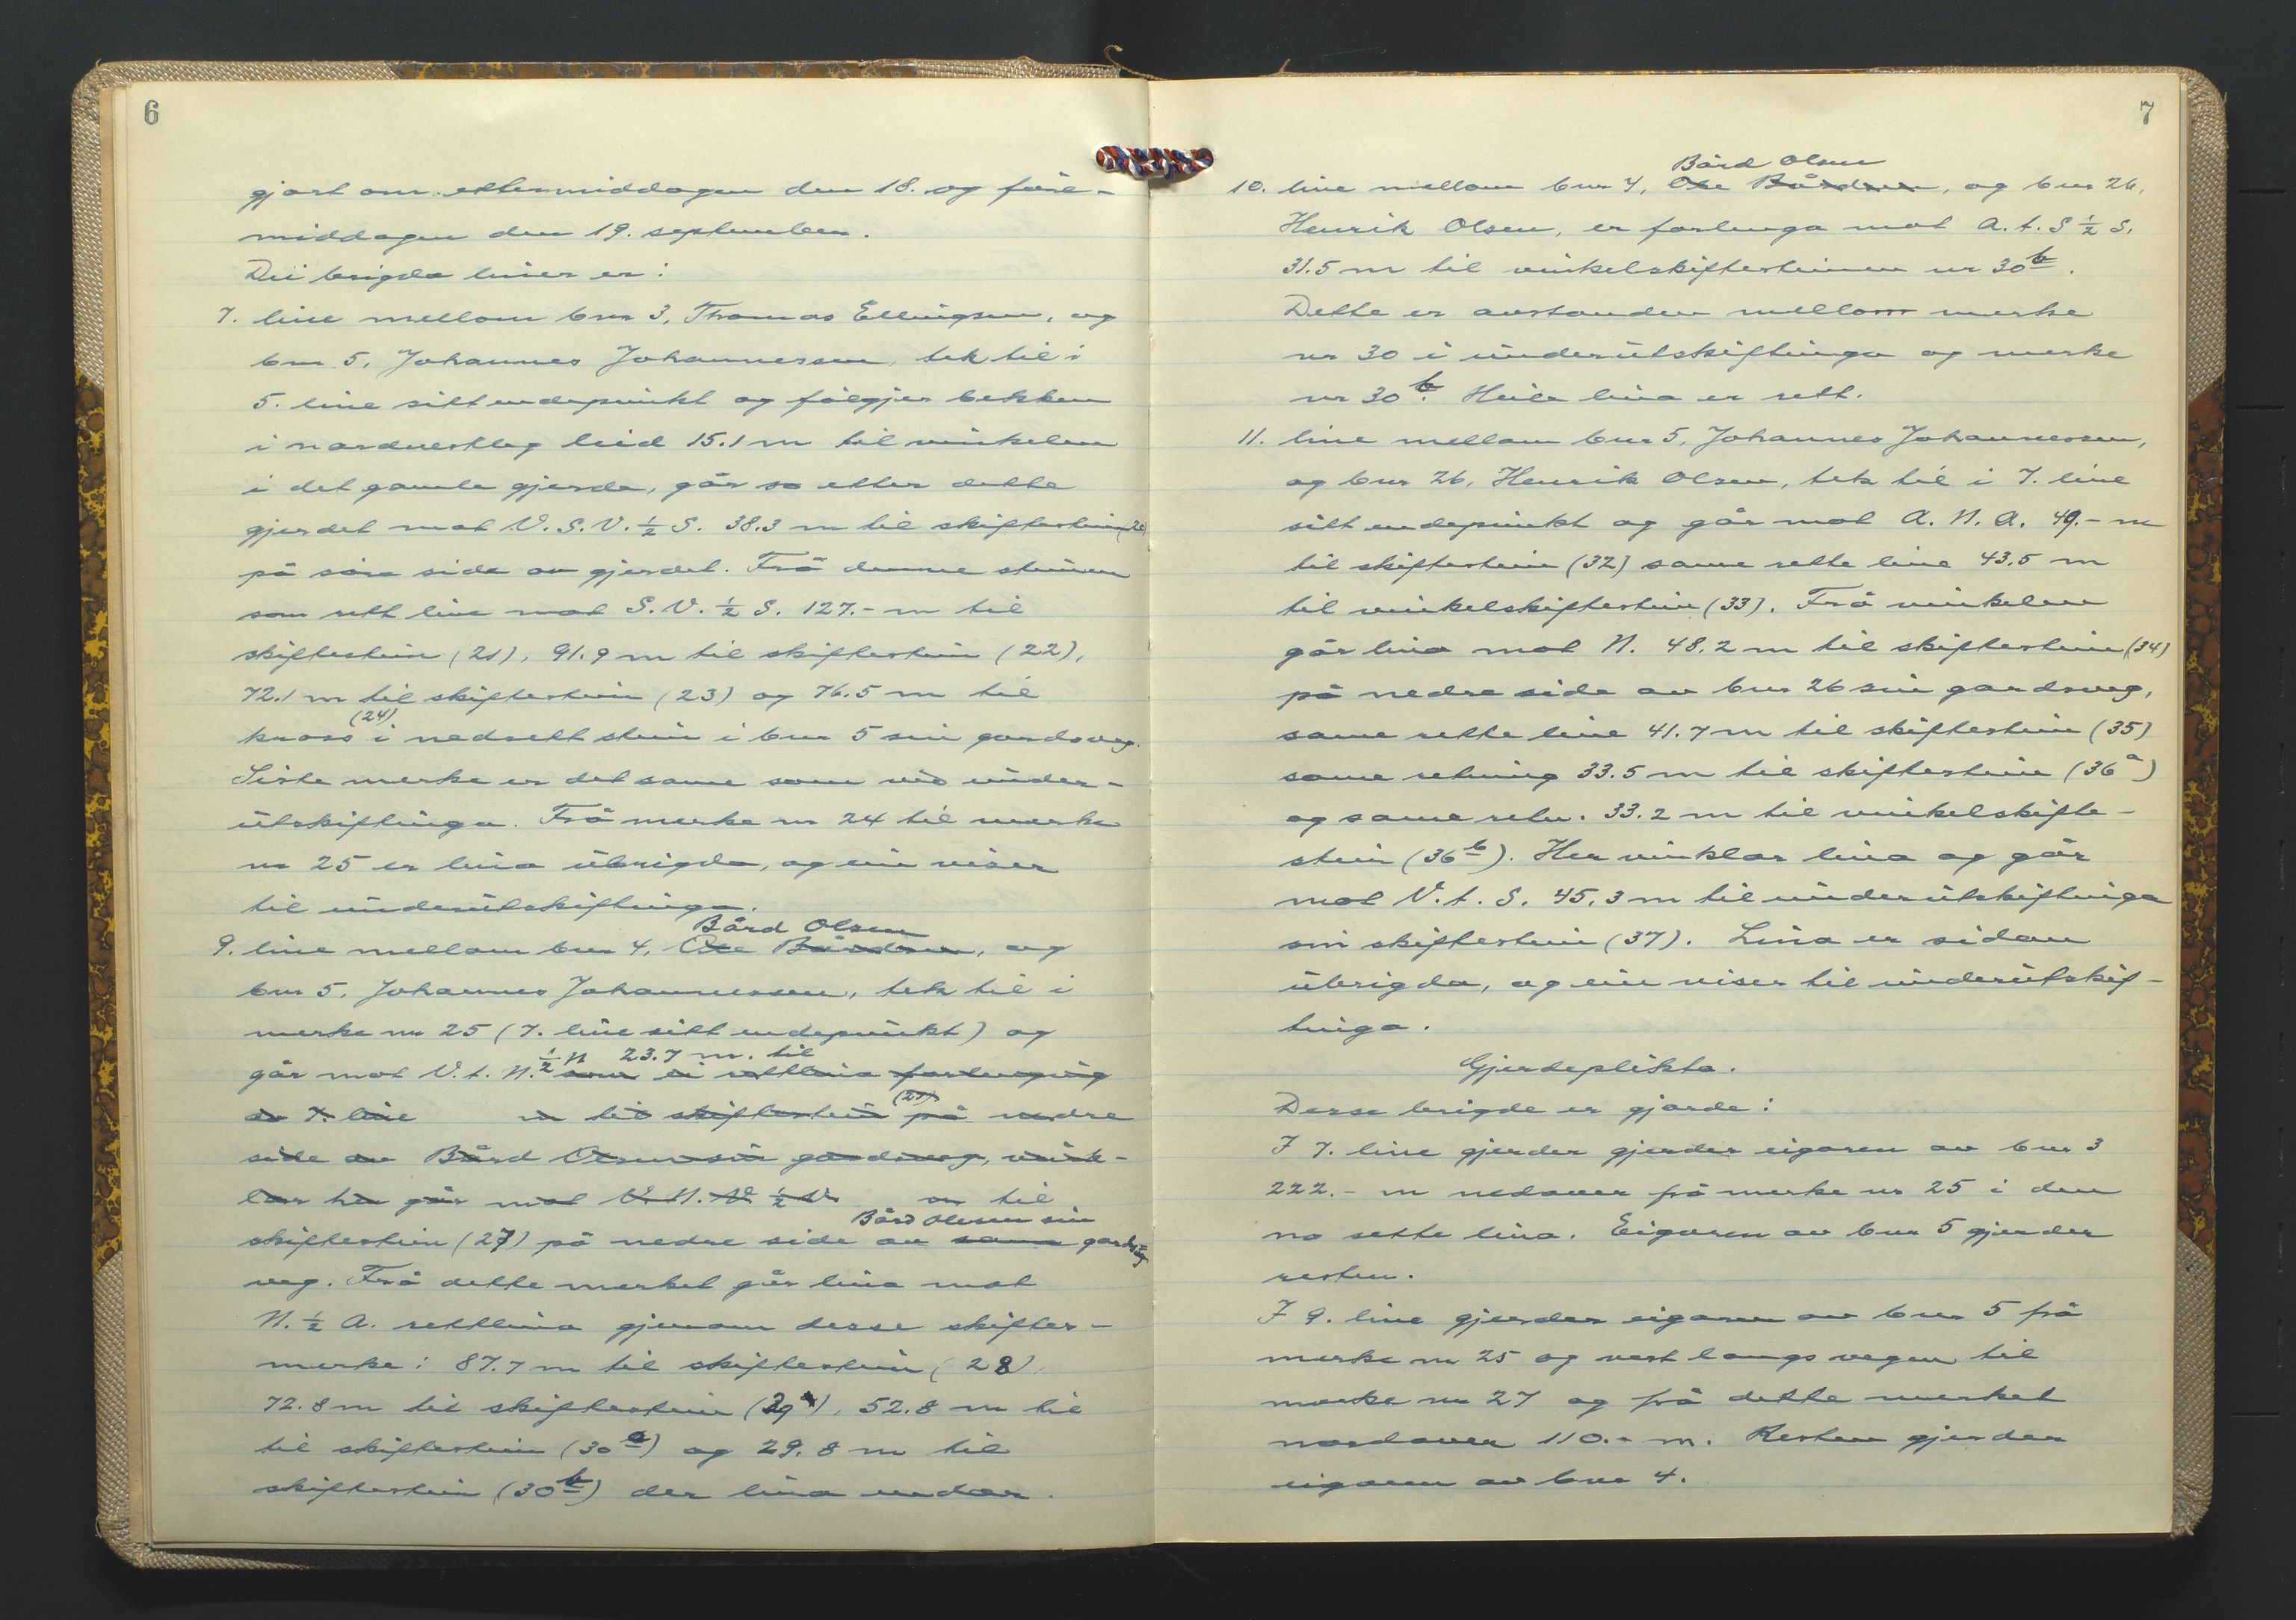 6
gjort om ettermiddagen den 18. og fóre-
middagen den 19. september.
Dei brigda liner er:
7. line mellom bnr 3, Thomas Ellingsen, og
bnr 5, Johannes Johannessen, tek til i
5. line sitt endepunkt og fólgjer bekken
i nordvestleg leid 15.1 m til vinkelen
i det gamle gjerde, går so etter dette
gjerdet mot V.S.V. ½ S. 38.3 m til skiftestein (20)
på sóre side av gjerdet. Frå denne steinen
som rett line mot S.V. ½ S. 127.- m til
skiftestein (21), 91.9 m til skiftestein (22),
72.1 m til skiftestein (23) og 76.5 m til
(24)
kross i nedsett stein i bnr 5 sin gardsveg.
Siste merke er det same som vid under-
utskiftinga. Frå merke nr 24 til merke
nr 25 er lina ubrigda, og ein viser
til underutskiftinga.
Bård Olsen
9. line mellom bnr 4, Ole Bårdsen, og
bnr 5, Johannes Johannessen, tek til i
merke nr 25 (7. line sitt endepunkt) og
½ N 23.7 m. til
går mot V.t.N. som ei rettlina forlenging
(27)
av 7. line m til skiftestein på nedre
side av Bård Olsen sin gardsveg, vink-
lar her går mot V.N.V ½ V m til
Bård Olesen sin
skiftestein (27) på nedre side av same gards-
veg. Frå dette merket går lina mot
N. ½ A. rettlina gjenom desse skifter-
merke: 87.7 m til skiftestein (28),
72.8 m til skiftestein (29), 52.8 m til
til skiftestein (30 a) og 29.8 m til
skiftestein (30 b) der lina endar.
7
Bård Olsen
10. line mellom bnr 4, Ole Bårdsen, og bnr 26,
Henrik Olsen, er forlenga mot A.t.S ½ S.
31.5 m til vinkelskiftesteinen nr 30 b.
Dette er avstanden mellom merke
nr 30 i underutskiftinga og merke
nr 30 b. Heile lina er rett.
11. line mellom bnr 5, Johannes Johannessen,
og bnr 26, Henrik Olsen, tek til i 7. line
sitt endepunkt og går mot A.N.A. 49.- m
til skiftestein (32) same rette line 43.5 m
til vinkelskiftestein (33). Frå vinkelen
går lina mot N. 48.2 m til skiftestein (34)
på nedre side av bnr 26 sin gardsveg,
same rette line 41.7 m til skiftestein (35)
same retning 33.5 m til skiftestein (36 a)
og same retn. 33.2 m til vinkelskifte-
stein (36 b). Her vinklar lina og går
mot V.t.S. 45.3 m til underutskiftinga
sin skiftestein (37). Lina er sidan
ubrigda, og ein viser til underutskif-
tinga.
Gjerdeplikta.
Desse brigde er gjorde:
I 7. line gjerder gjerder eigaren av bnr 3
222.- m nedover frå merke nr 25 i den
no sette lina. Eigaren av bnr 5 gjerder
resten.
I 9. line gjerder eigaren av bnr 5 frå
merke nr 25 og vest langs vegen til
merke nr 27 og frå dette merket
nordover 110.- m. Resten gjerder
eigaren av bnr 4.